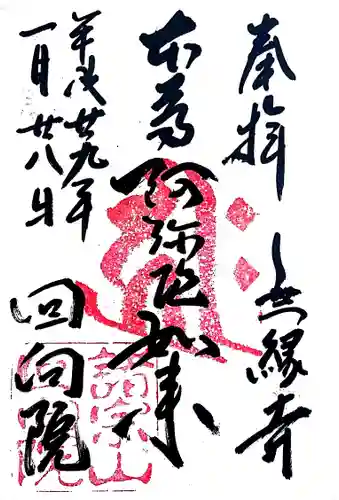 奉拝 無縁寺
本尊 阿弥陀如来
平成廿九年
一月廿八日
回向院